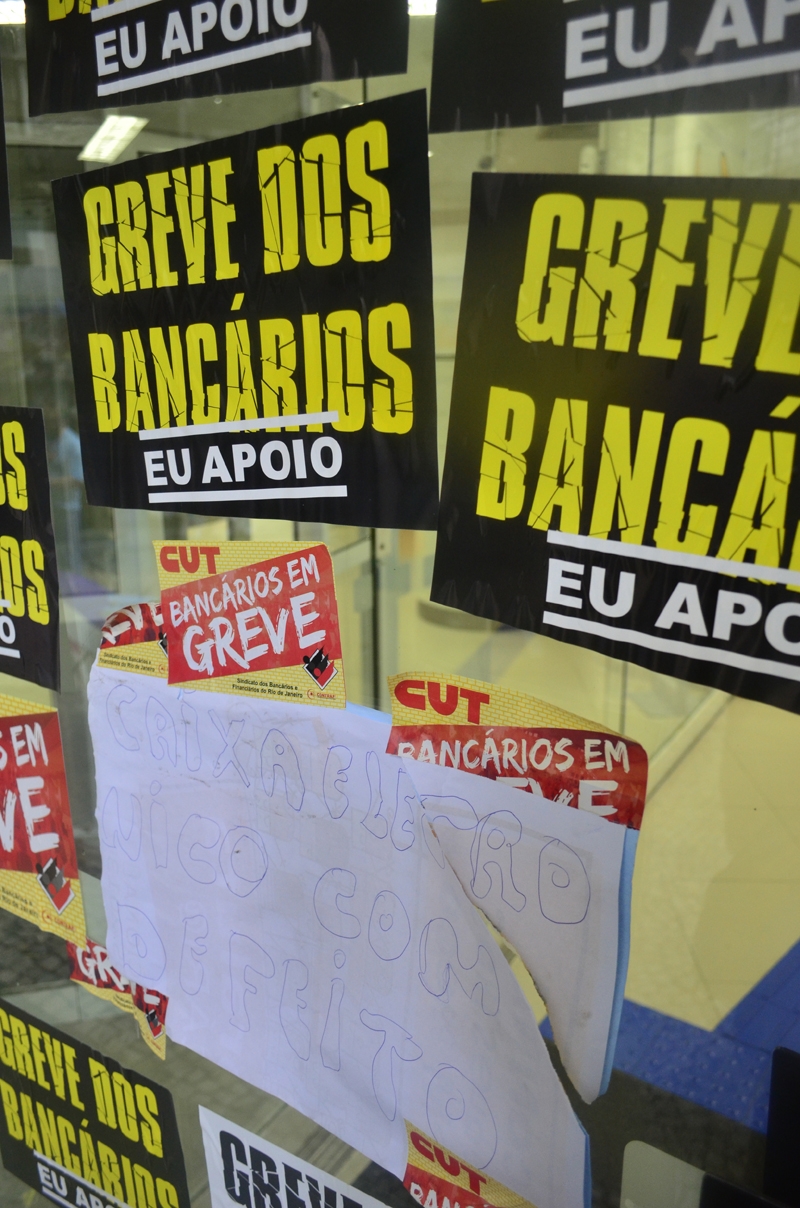 EU APOIO
EU AP
GREVE DOS
BANCÁRIOS
EU APOIO
GREVE
BANCÁ
EU APO
OS
OS
O
CUT
BANCÁRIOS EM
GREVE
Sindicato dos Bancários e
Financiários do Rio de Janeiro
CUT
BANCÁRIOS EM
GREVE
S EM
VE
CAIXA ELETRO
NICO COM
DEFEITO
GREVE
GREVE DOS
BANCÁRIOS
EU APO
GREVE
CUT
BANC